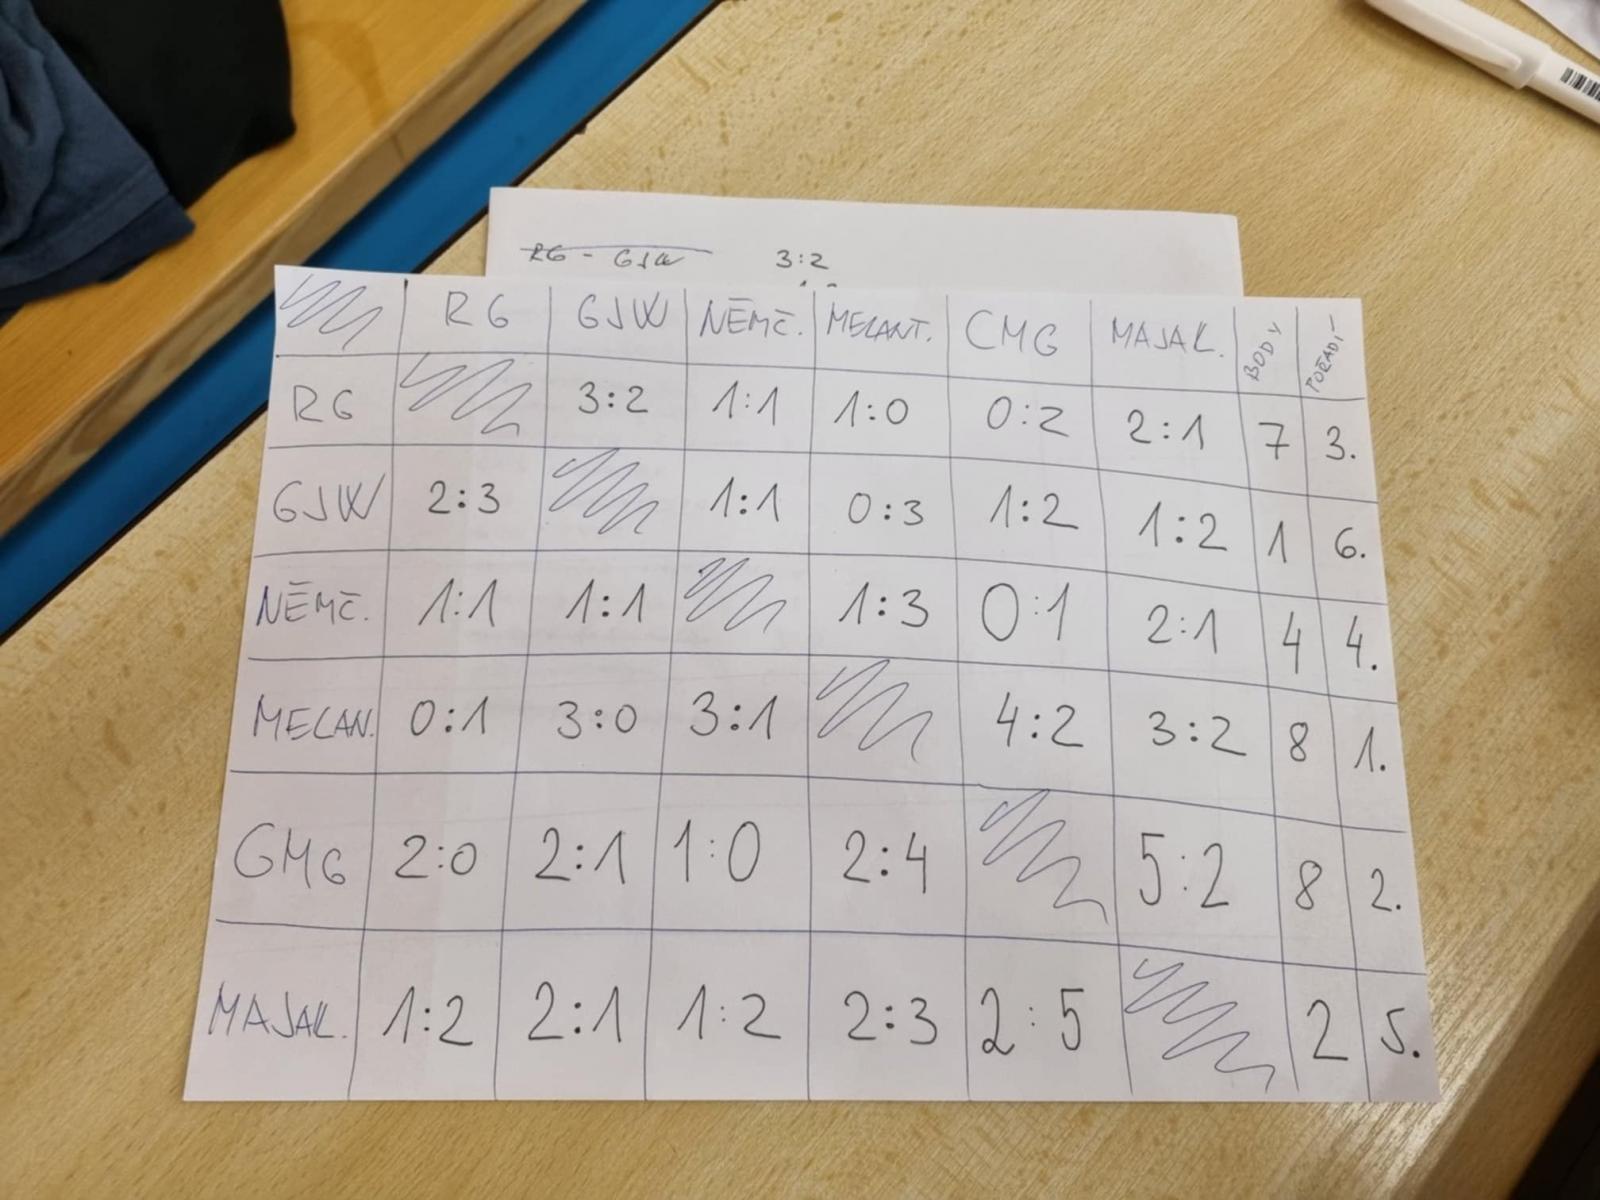 RG - GJW 3:2
RG GJW NĚMČ. MELANT. CMG MAJAK. BODY POŘADÍ
RG 3:2 1:1 1:0 0:2 2:1 7 3.
GJW 2:3 1:1 0:3 1:2 1:2 1 6.
NĚMČ. 1:1 1:1 1:3 0:1 2:1 4 4.
MELAN. 0:1 3:0 3:1 4:2 3:2 8 1.
GMG 2:0 2:1 1:0 2:4 5:2 8 2.
MAJAK. 1:2 2:1 1:2 2:3 2:5 2 5.